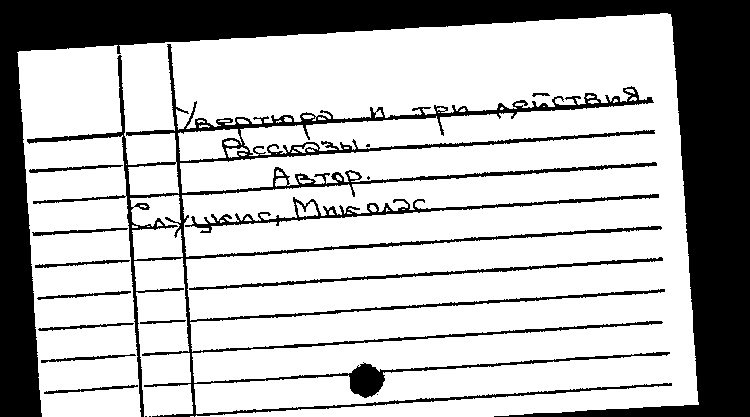 Увертюра и три действия.
Рассказы.
Автор.
Слуцкис, Миколас